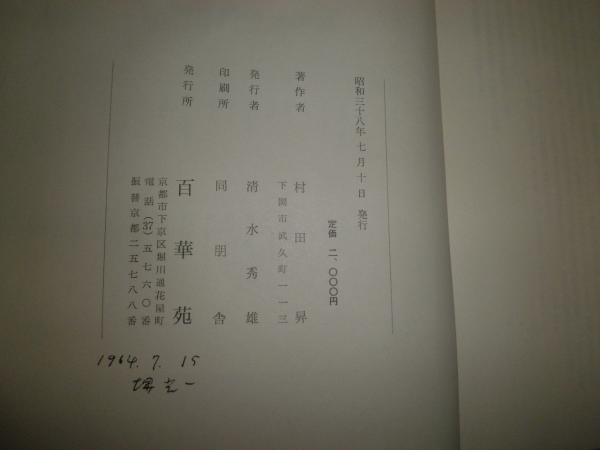 昭和三十八年七月十日 発行
定価 二、〇〇〇円
著作者 村田昇
下関市武久町一一三
発行者 清水秀雄
印刷所 同朋舎
発行所 百華苑
京都市下京区堀川通花屋町
電話(37)五七六〇番
振替京都二五七八八番
1964. 7. 15